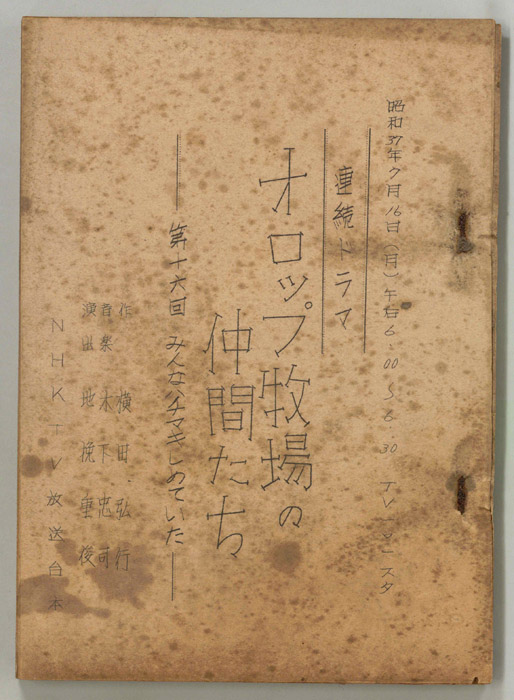 昭和37年7月16日(月)午后6.00〜6.30 TV
連続ドラマ
オロップ牧場の
仲間たち
第十六回 みんなハチマキしめていた
作 横田弘行
音楽 木下忠司
演出
NHK TV 放送台本